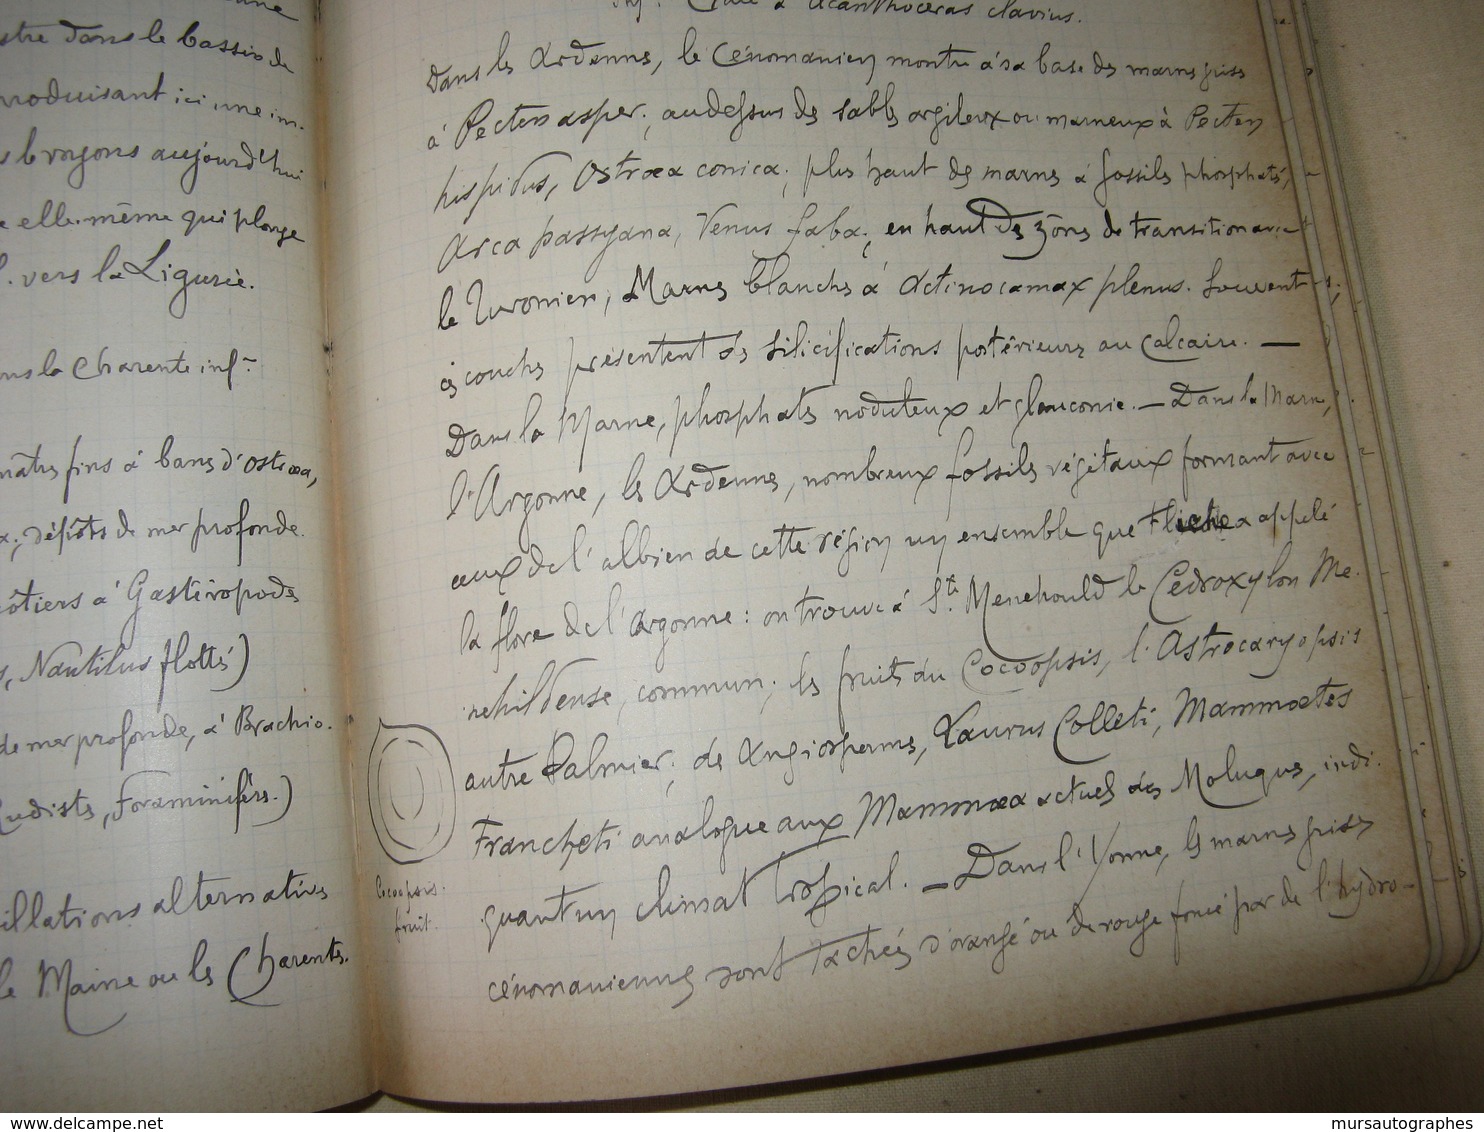 stre dans le bassin de
produisant ici une im-
s broyons aujourd'hui
elle-même qui plonge
vers la Ligurie.
la Charente infre
fins à bancs d'ostrœa,
dépôts de mer profonde.
côtiers à Gastéropodes
Nautilus flottés)
de mer profonde, à Brachio-
Rudistes, Foraminifères.)
illations alternatives
le Maine ou les Charentes.
inf. Craie à Acanthoceras clavius.
Dans les Ardennes, le Cénomanien montre à sa base des marnes grises
à Pecten asper; au dessus des sables argileux ou marneux à Pecten
hispidus, Ostræa conica; plus haut des marnes à fossiles phosphatés,
Arca passyana, Venus faba; en haut des zones de transition avec
le Turonien, Marnes blanches à Actinocamax plenus. Souvent
ces couches présentent des silicifications postérieures au calcaire. —
Dans la Marne, phosphates noduleux et glauconie. — Dans la Marne,
l'Argonne, les Ardennes, nombreux fossiles végétaux formant avec
ceux de l'albien de cette région un ensemble que Fliche a appelé
la flore de l'Argonne: on trouve à Ste Menehould le Cedroxylon Me-
nehildense, commun; les fruits du Cocoopsis, l'Astrocaryopsis
autre Palmier; des Angiospermes, Laurus Colleti, Mammœtes
Francheti analogue aux Mammœa actuels des Moluques, indi-
quant un climat tropical. — Dans l'Yonne, les marnes grises
cénomaniennes sont tachées d'orangé ou de rouge foncé par de l'hydro-
Cocoopsis.
fruit.
www.delcampe.net
mursautographes